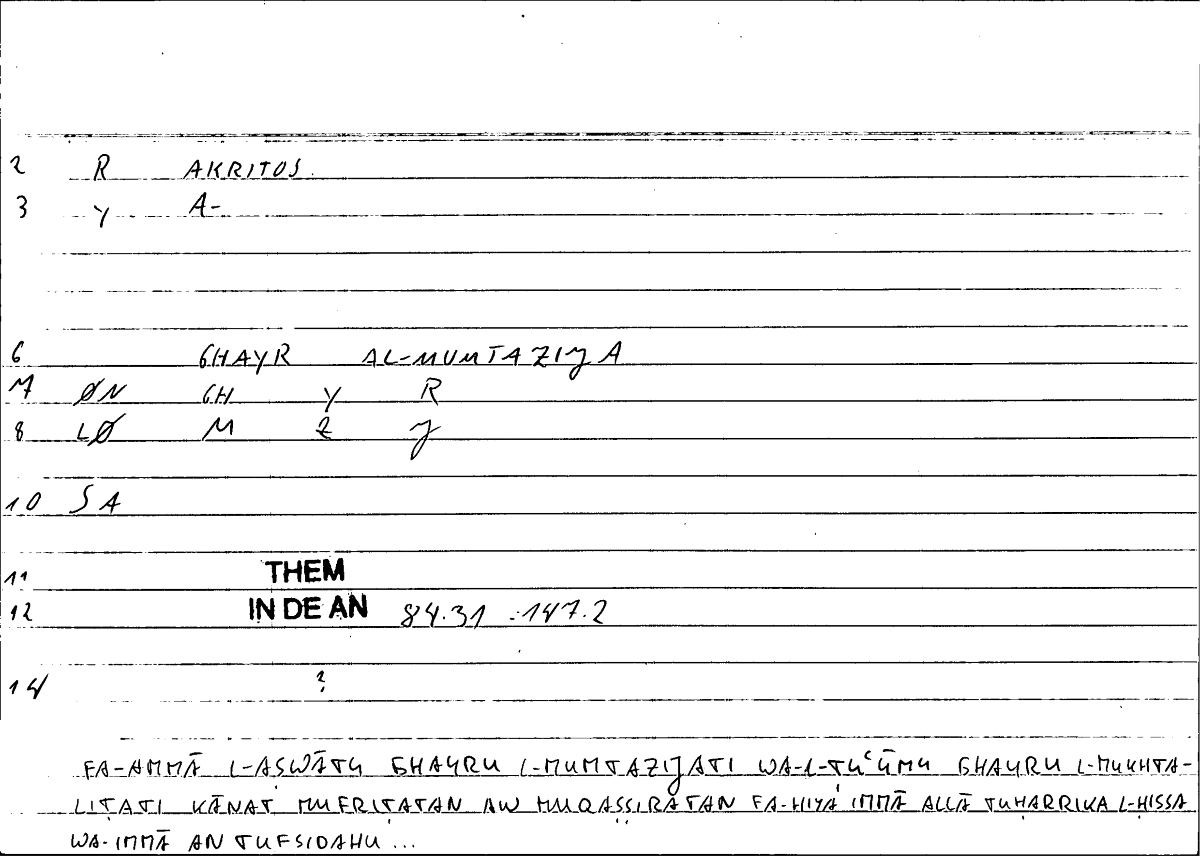 2 R AKRITOS.
3 Y A-
6 GHAYR AL-MUMTAZIJA
7 ØN GH Y R
8 LØ M Z J
10 SA
11 THEM
12 IN DE AN 84.31 :147.2
14 ?
FA-AMMĀ L-AṢWĀTU GHAYRU L-MUMTAZIJATI WA-L-ṬUʿŪMU GHAYRU L-MUKHTA-
LIṬATI KĀNAT MUFRIṬATAN AW MUQAṢṢIRATAN FA-HIYA IMMĀ ALLĀ TUḤARRIKA L-ḤISSA
WA-IMMĀ AN TUFSIDAHU ...